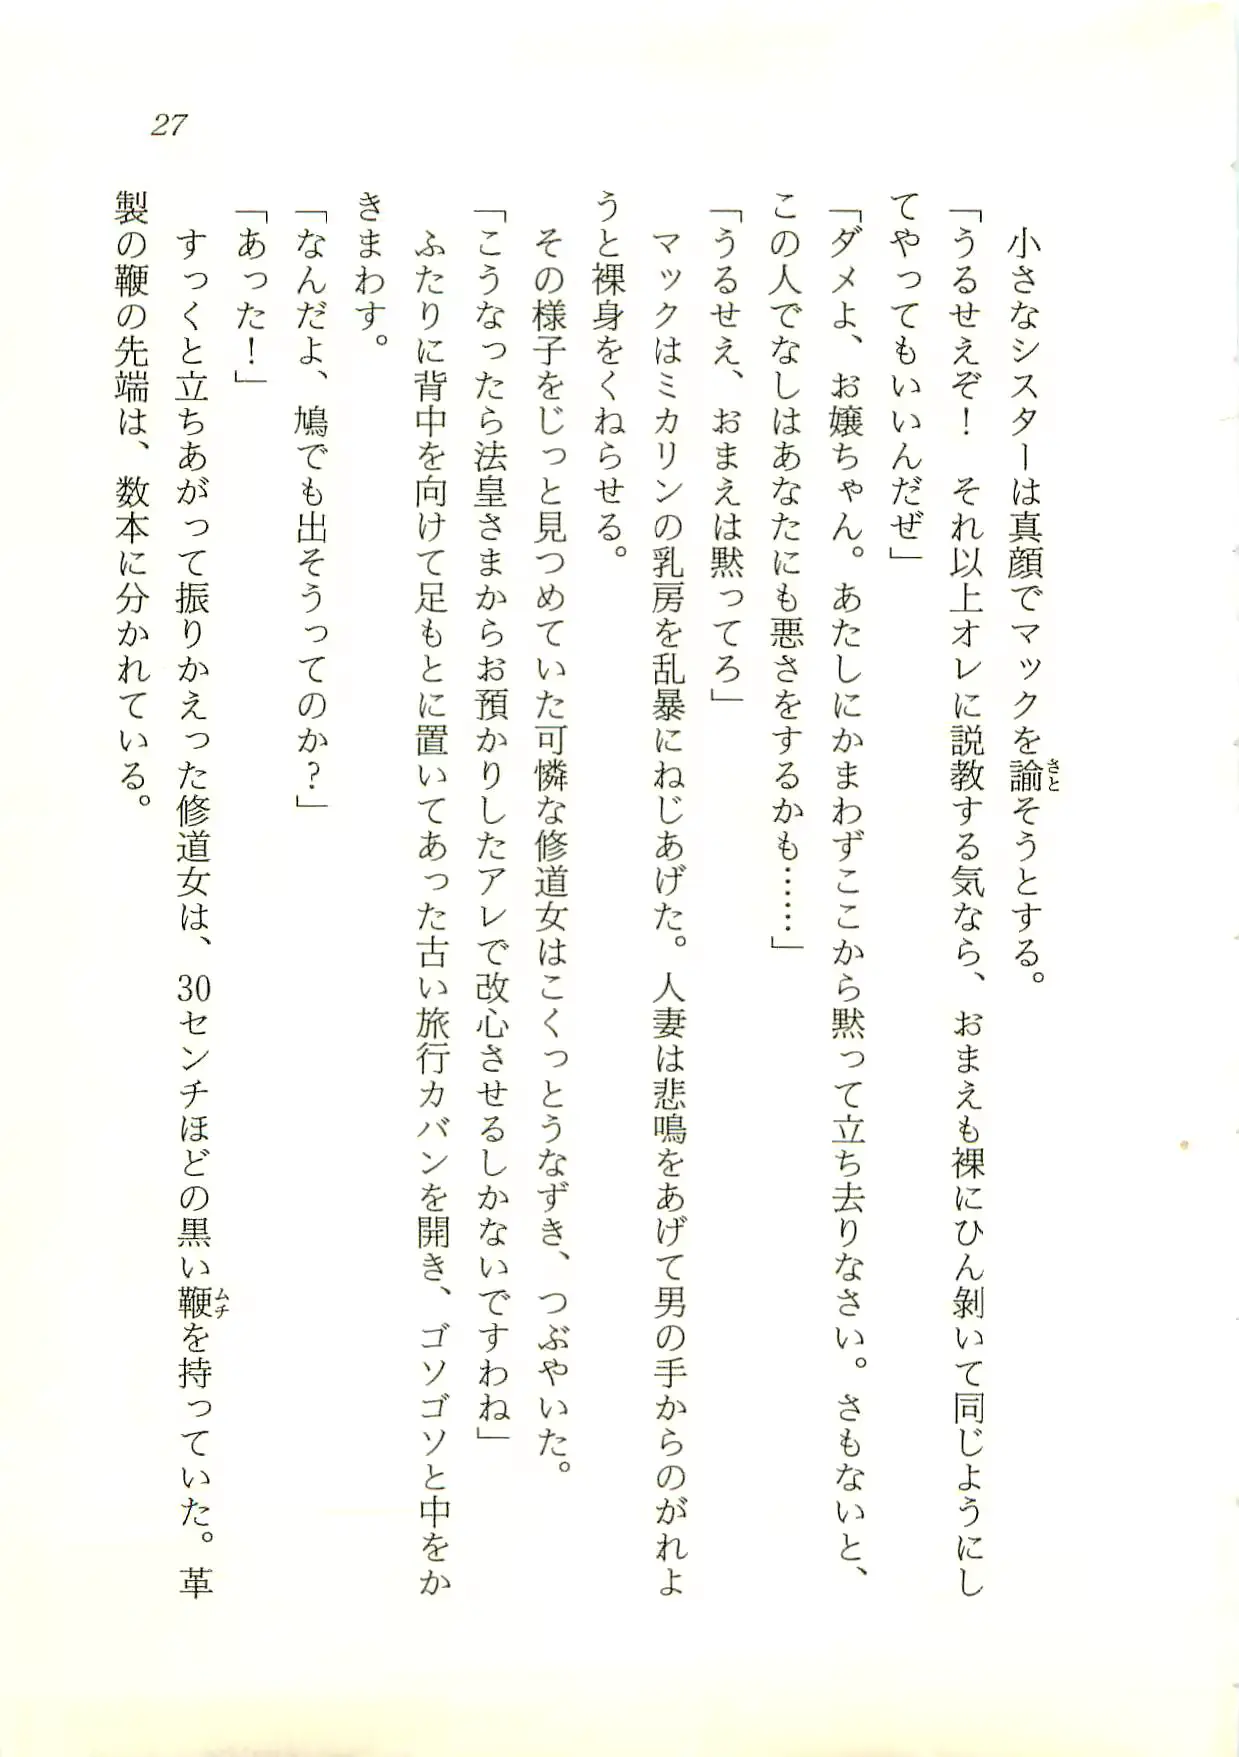 27
小さなシスターは真顔でマックを諭そうとする。
「うるせえぞ！　それ以上オレに説教する気なら、おまえも裸にひん剝いて同じようにし
てやってもいいんだぜ」
「ダメよ、お嬢ちゃん。あたしにかまわずここから黙って立ち去りなさい。さもないと、
この人でなしはあなたにも悪さをするかも……」
「うるせえ、おまえは黙ってろ」
マックはミカリンの乳房を乱暴にねじあげた。人妻は悲鳴をあげて男の手からのがれよ
うと裸身をくねらせる。
その様子をじっと見つめていた可憐な修道女はこくっとうなずき、つぶやいた。
「こうなったら法皇さまからお預かりしたアレで改心させるしかないですわね」
ふたりに背中を向けて足もとに置いてあった古い旅行カバンを開き、ゴソゴソと中をか
きまわす。
「なんだよ、鳩でも出そうってのか？」
「あった！」
すっくと立ちあがって振りかえった修道女は、30センチほどの黒い鞭を持っていた。革
製の鞭の先端は、数本に分かれている。
さと
ムチ